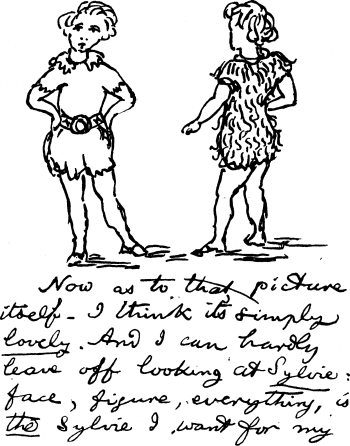 Now as to that picture
itself - I think it's simply
lovely. And I can hardly
leave off looking at Sylvie:
face, figure, everything, is
the Sylvie I want for my